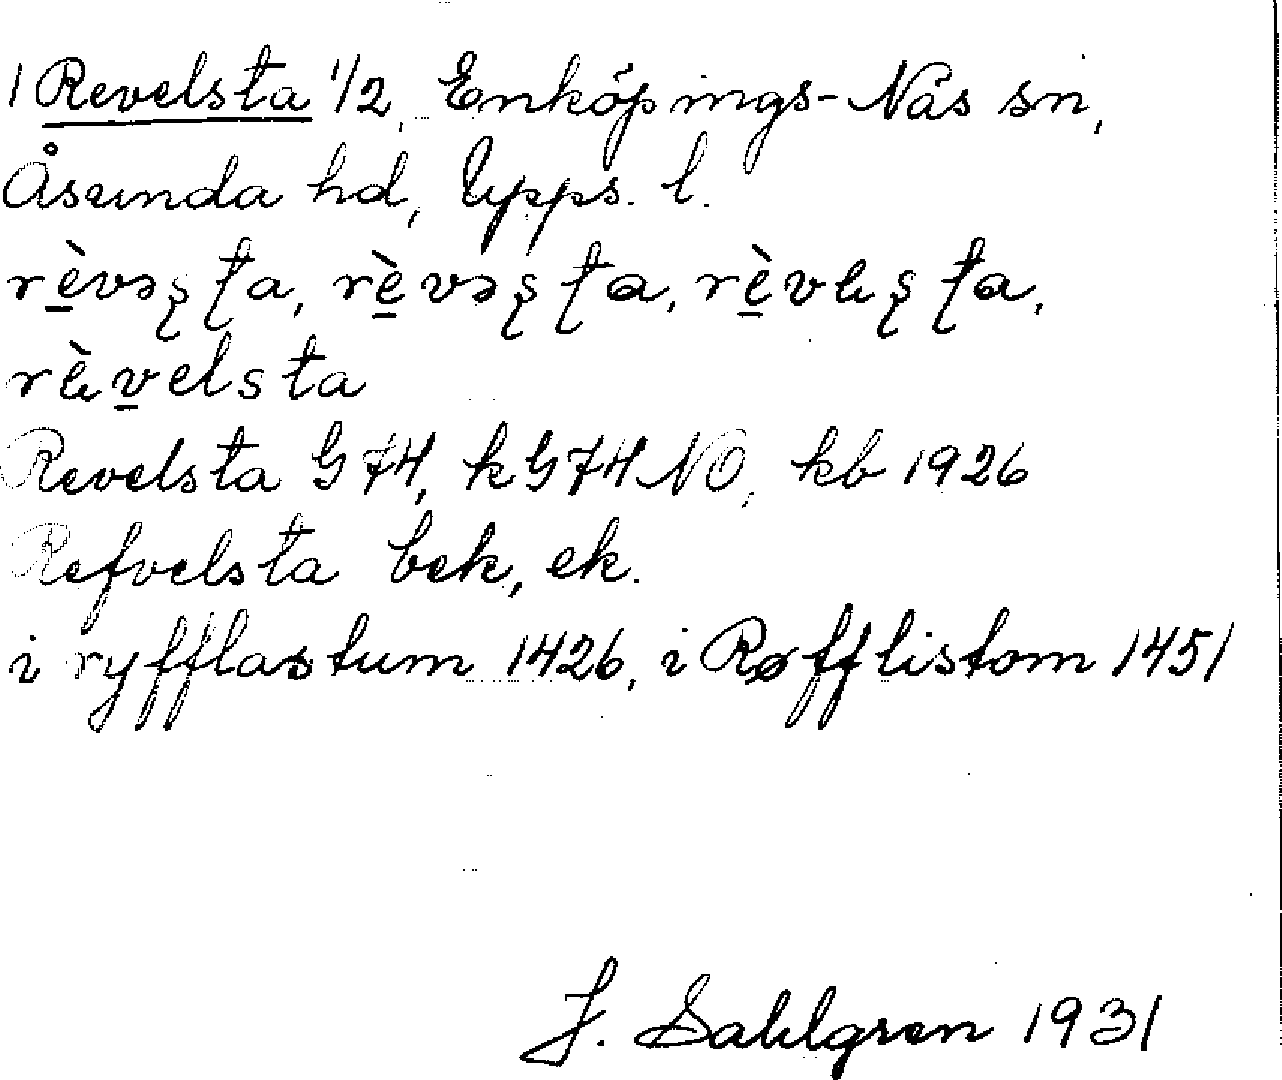 1 Revelsta 1/2, Enköpings-Näs sn,
Åsunda hd, Upps. l.
rèvəʂʈa, rèvəʂʈa, rèvɐʂʈa,
rɐ̀velsta
Revelsta G74, kG74NO, kb 1926
Refvelsta bek, ek.
i ryfflastum 1426, i Røfflistom 1451
J. Sahlgren 1931